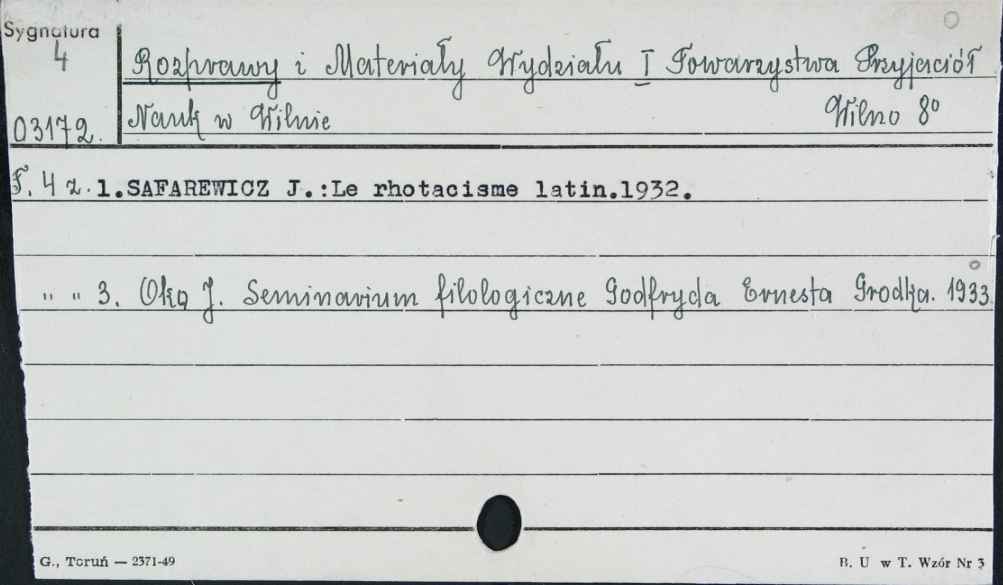 Sygnatura
4
03172.
Rozprawy i Materiały Wydziału I Towarzystwa Przyjaciół
Nauk w Wilnie Wilno 8°
T. 4 z. 1.SAFAREWICZ J.:Le rhotacisme latin.1932.
" " 3. Oko J. Seminarium filologiczne Godfryda Ernesta Grodka. 1933.
G., Toruń — 2371-49
B. U w T. Wzór Nr 3